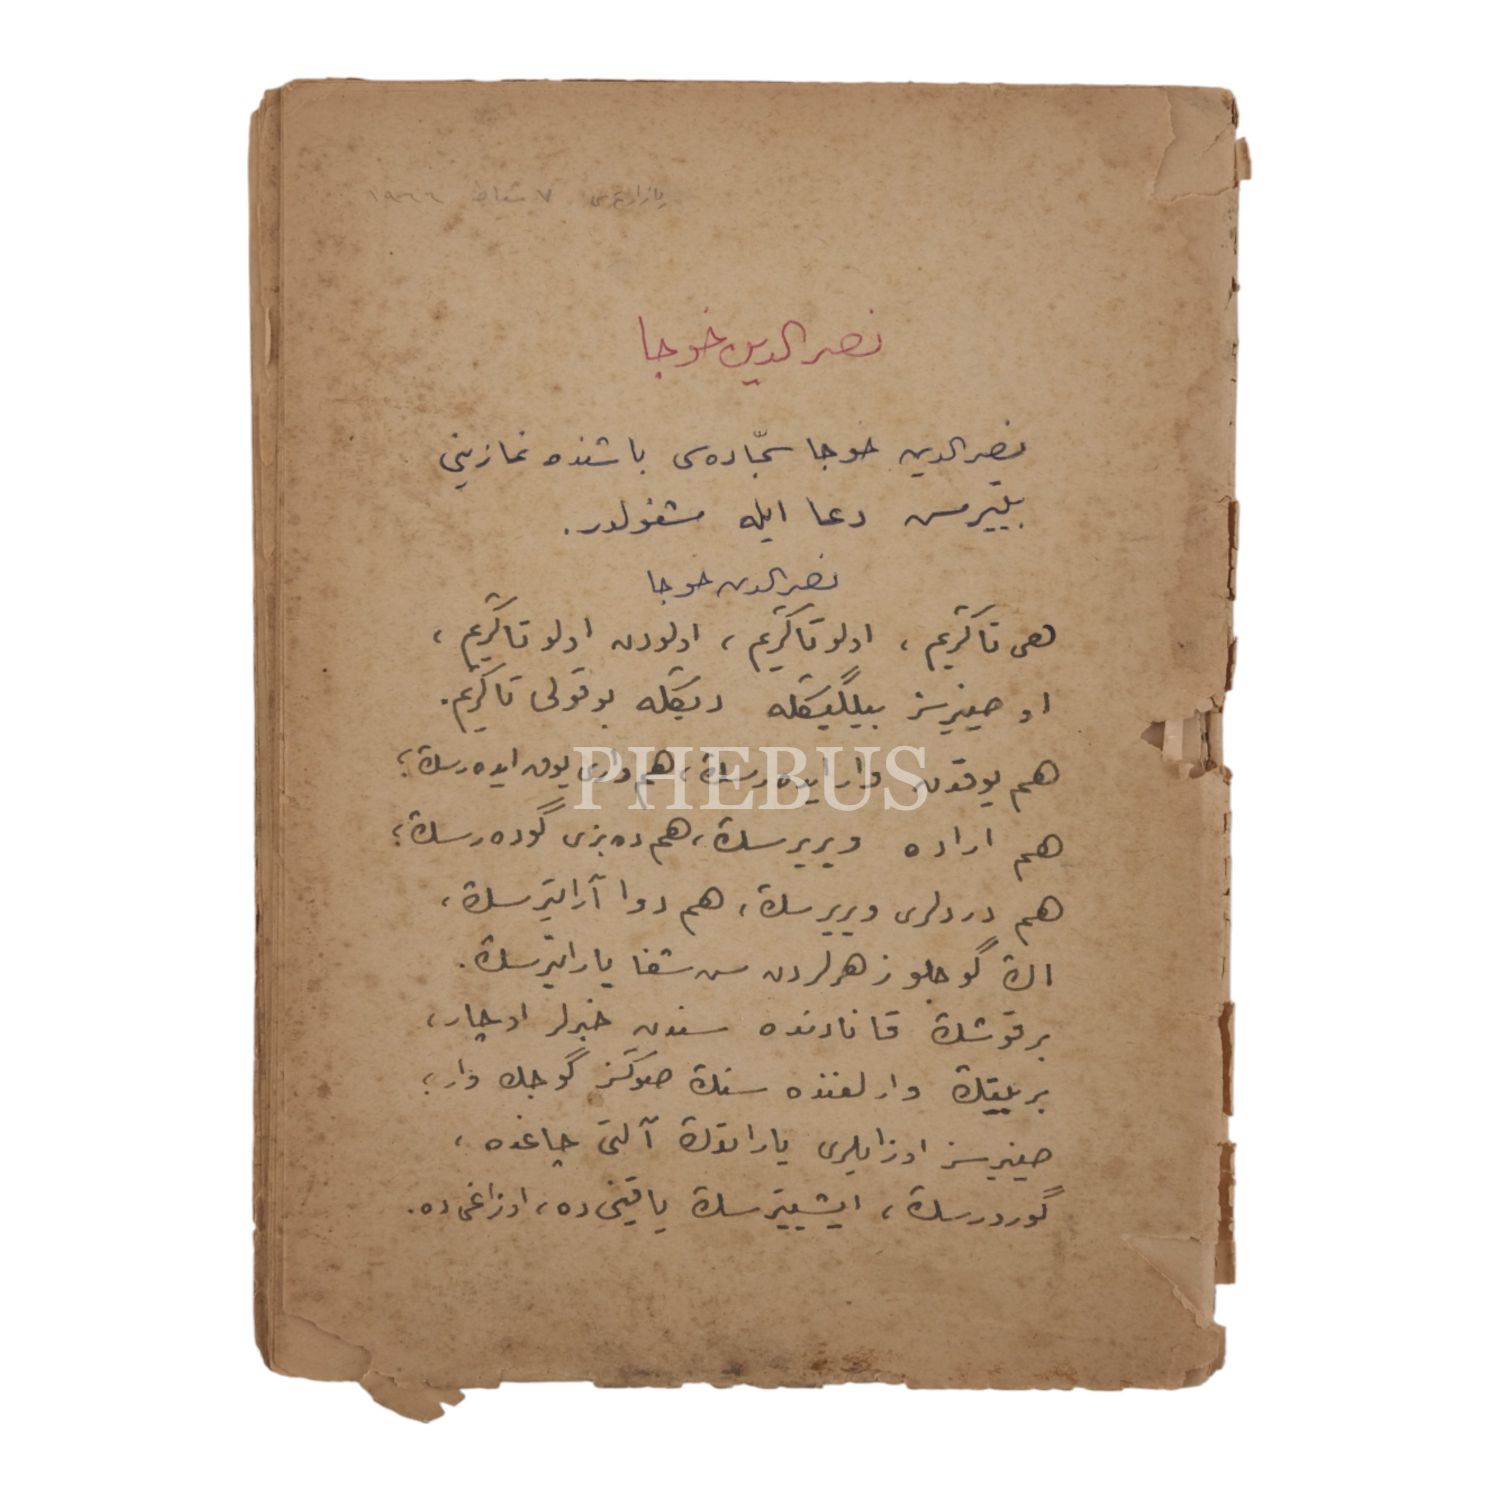 پازارتسی ٧ شباط ١٩٦٦
نصرالدین خوجا
نصرالدین خوجا سجّاده‌سی باشنده نمازینی
بیتیرمش دعا ایله مشغولدر.
نصرالدین خوجا
هی تاڭریم، اولو تاڭریم، اولودن اولو تاڭریم،
او صینیرسز بیلگیڭله دیڭله بو قولی تاڭریم.
هم یوقدن وار ایده‌رسڭ، هم واری یوق ایده‌رسڭ؛
هم اراده ویریرسڭ، هم ده بزی گوده‌رسڭ؛
هم دردلری ویریرسڭ، هم دوا آراتیرسڭ،
اڭ گوجلو زهرلردن سن شفا یاراتیرسڭ.
بر قوشڭ قانادنده سندن خبرلر اوچار،
بر بیتڭ وارلغنده سنڭ صوڭسز گوجڭ وار؛
صینیرسز اوزایلری یاراتدڭ آلتی چاغده،
گورورسڭ، ایشیتیرسڭ یاقینی ده، اوزاغی ده.
PHEBUS